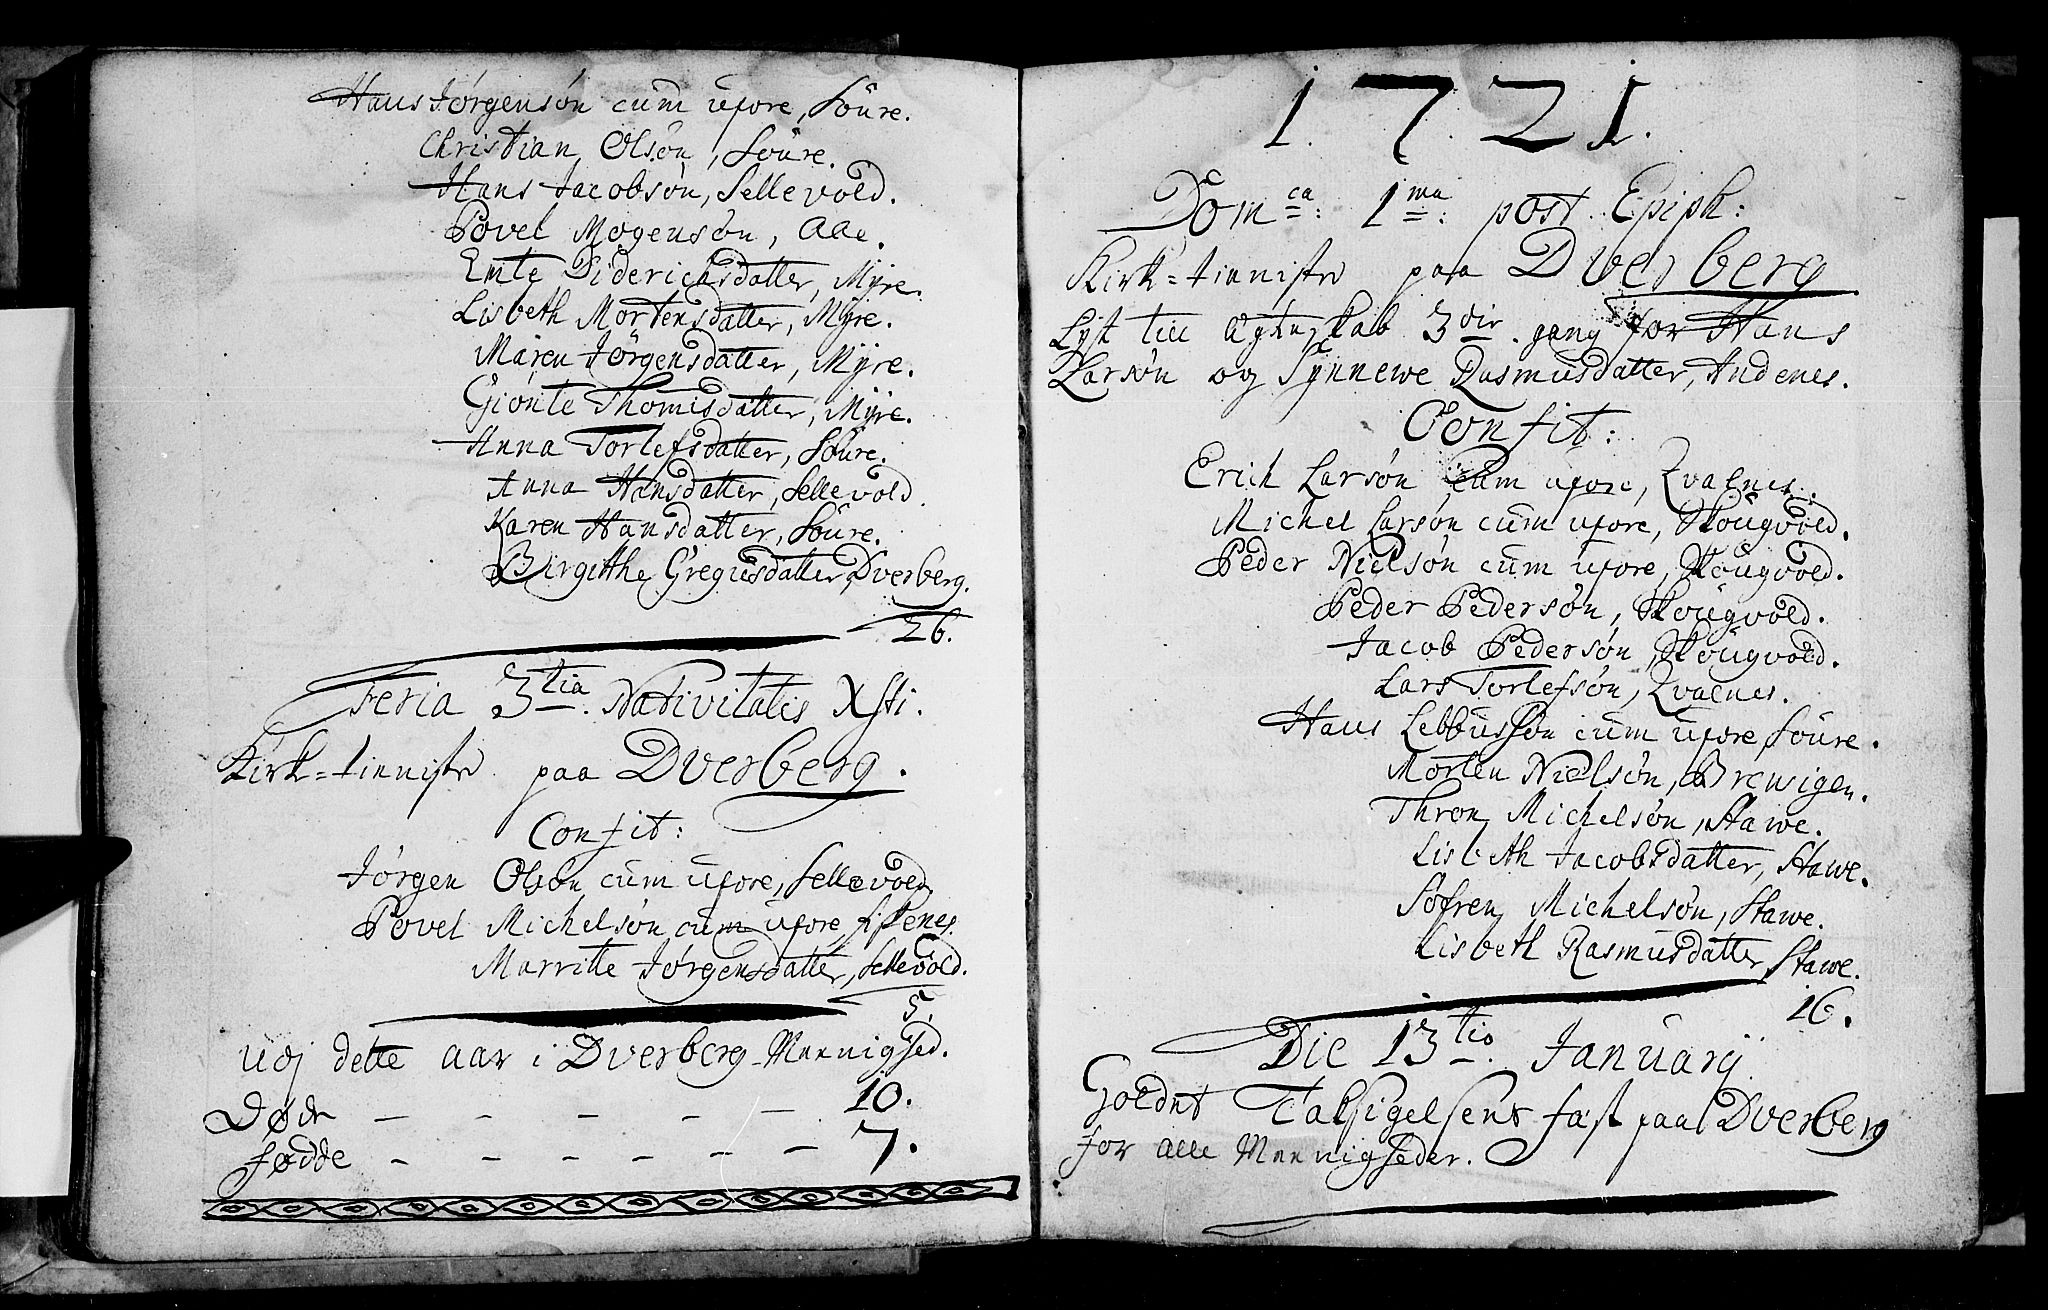 Hans Jørgensøn cum uxore, Soure.
Christian Olsøn, Soure.
Hans Jacobsøn, Sellevold.
Povel Mogensøn, Aae.
Emte Diderichsdatter, Myre.
Lisbeth Mortensdatter, Myre.
Maren Jørgensdatter, Myre.
Giønte Thomisdatter, Myre.
Anna Torlefsdatter, Soure.
Anna Hansdatter, Sellevold.
Karen Hansdatter, Soure.
Birgitthe Gregusdatter, Dverberg.
26.
Feria 3tia. Nativitatis Xsti.
Kirk=tienniste paa Dverberg.
Confit:
Jørgen Olsøn cum uxore, Sellevold.
Povel Michelsøn cum uxore, Fiskenes.
Marritte Jørgensdatter, Sellevold.
5.
Udj dette aar i Dverberg Meenighed.
Døde – – – – – 10.
Fødde – – – – – – 7.
1721.
Domca: 1ma: post Epiph:
Kirk=tienniste paa Dverberg
Lyst till Ægteskab 3die. gang for Hans
Larsøn og Synnewe Rasmusdatter, Andenes.
Confit:
Erich Larsøn cum uxore, Qvalnes.
Michel Larsøn cum uxore, Skougvold.
Peder Nielsøn cum uxore, Skougvold.
Peder Pedersøn, Skougvold.
Jacob Pedersøn, Skougvold.
Lars Torlefsøn, Qvalnes.
Hans Lebbussøn cum uxore, Soure.
Morten Nielsøn, Brewigen.
Thron Michelsøn, Stawe.
Lisbeth Jacobsdatter, Stawe.
Søfren Michelsøn, Stawe.
Lisbeth Rasmusdatter, Stawe.
16.
Die 13tio. Januarij
Holdet Taksigelsens fæst paa Dverberg
for alle Meenigheder.